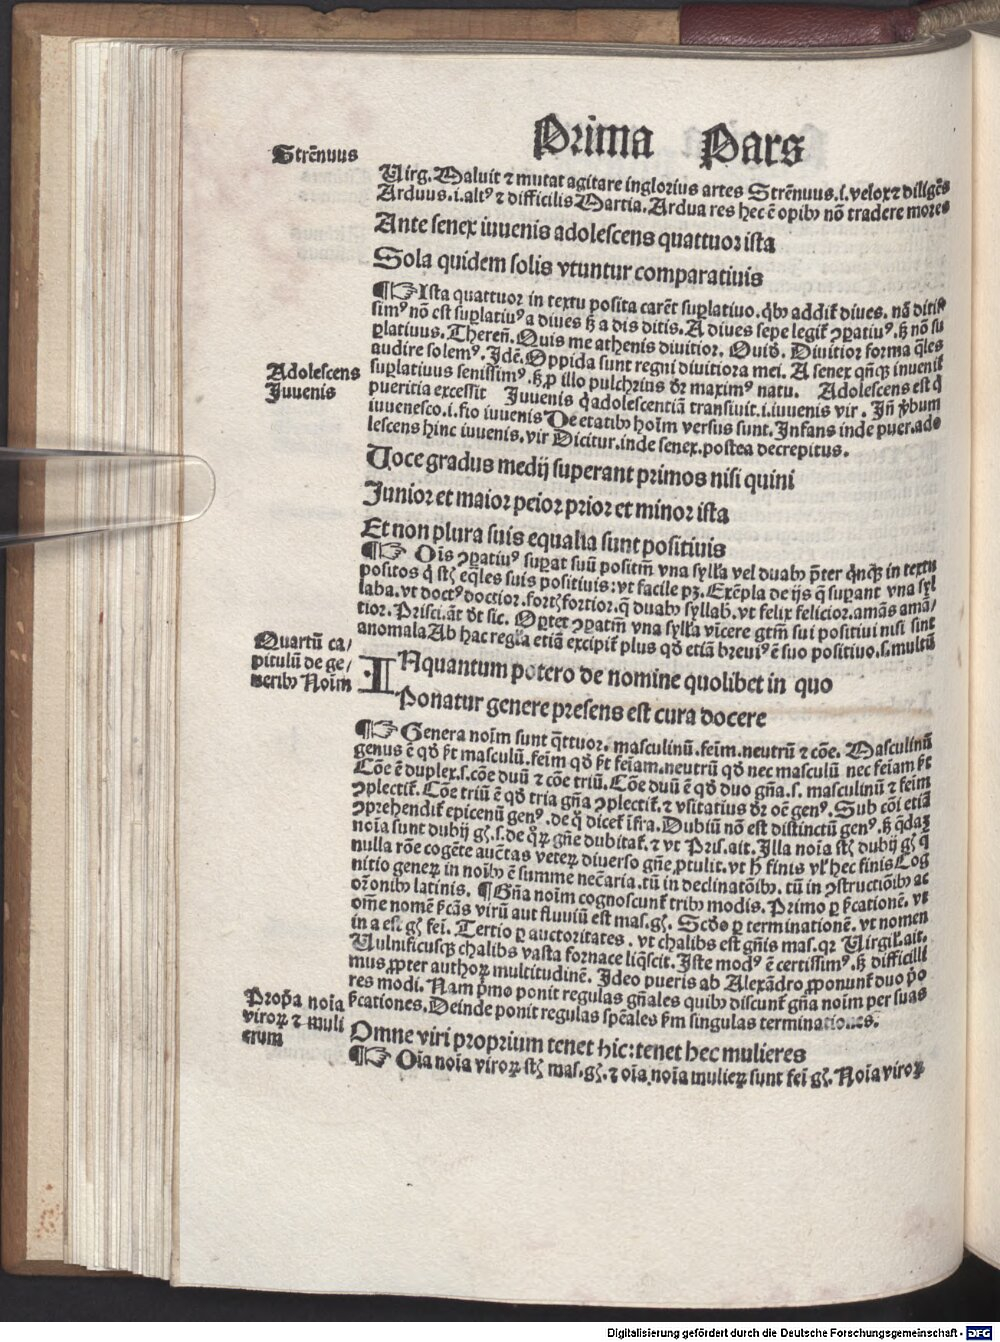 Prima Pars
Strēnuus
Uirg. Maluit ⁊ mutat agitare inglorius artes Strēnuus.i.velox ⁊ diligēs
Arduus.i.altꝰ ⁊ difficilis Martia. Ardua res hec ē opibꝫ nō tradere mores
Ante senex iuuenis adolescens quattuor ista
Sola quidem solis vtuntur comparatiuis
¶☞ Ista quattuor in textu posita carēt suꝑlatiuo. qͥbꝫ addiꝉ diues. nā ditis
simꝰ nō est suꝑlatiuꝰ a diues sꝫ a dis ditis. A diues sepe legiꝉ ꝯꝑatiuꝰ. sꝫ nō su
ꝑlatiuus. Thereñ. Quis me athenis diuitior. Ouiđ. Diuitior forma q̄les
audire solemꝰ. Jdē. Oppida sunt regni diuitiora mei. A senex qñqꝫ inueniꝉ
suꝑlatiuus senissimꝰ. sꝫ ꝓ illo pulchrius đr maximꝰ natu. Adolescens est q̇
Adolescens
Juuenis
pueritia excessit Juuenis q̇ adolescentiā transiuit.i.iuuenis vir. Jñ ꝟbum
iuuenesco.i.fio iuuenis De etatibꝫ hoīm versus sunt. Jnfans inde puer.ado
lescens hinc iuuenis.vir Dicitur.inde senex.postea decrepitus.
Uoce gradus medij superant primos nisi quini
Junior et maior peior prior et minor ista
Et non plura suis equalia sunt positiuis
¶☞ Oīs ꝯꝑatiuꝰ suꝑat suū positīm vna sylła vel duabꝫ p̄ter q̇nqꝫ in textu
positos q̇ st̄ eq̄les suis positiuis: vt facile pꝫ. Exēpla de ijs q̄ suꝑant vna syl
laba. vt doctꝰ doctior. fortꝭ fortior. q̄ duabꝫ syllab. vt felix felicior. amās amā/
tior. Prisci. āt đt sic. Oꝑtet ꝯꝑatīm vna sylła vīcere gtīm sui positiui nisi sint
anomala Ab hac regła etiā excipiꝉ plus qđ etiā breuiꝰ ē suo positiuo.s.multū
Quartū ca/
pitulū de ge/
neribꝫ Noīm
INquantum potero de nomine quolibet in quo
Ponatur genere presens est cura docere
¶☞ Genera noīm sunt q̄ttuor. masculinū.feīm.neutrū ⁊ cōe. Masculinū
genus ē qđ p̄t masculū. feīm qđ p̄t feīam.neutrū qđ nec masculū nec feīam p̄t
Cōe ē duplex.s.cōe duū ⁊ cōe triū. Cōe duū ē qđ duo gña.s. masculinū ⁊ feīm
ꝯplectiꝉ. Cōe triū ē qđ tria gña ꝯplectiꝉ. ⁊ vsitatius đr oē genꝰ. Sub cōi etiā
ꝯprehendiꝉ epicenū genꝰ. de q̊ diceꝉ īfra. Dubiū nō est distinctū genꝰ. sꝫ q̄daꝫ
noīa sunt dubij gꝭ.s.de qͦꝝ gñe dubitaꝉ. ⁊ vt Pris.ait. Jlla noīa st̄ dubij gꝭ q̄
nulla rōne cogēte auc̄tas veteꝝ diuerso gñe ꝓtulit. vt h̄ finis vł hec finis Cog
nitio geneꝝ in noībꝫ ē summe nec̄aria. tū in declinatōībꝫ. tū in ꝯstructiōībꝫ ac
orōnibꝫ latinis. ¶ Gña noīm cognoscunꝉ tribꝫ modis. Primo ꝑ s̄cationē. vt
om̄e nomē s̄cās virū aut fluuiū est mas.gꝭ. Scđo ꝑ terminationē. vt nomen
in a est gꝭ feī. Tertio ꝑ auctoritates. vt chalibs est gñis mas. qꝛ Uirgil.ait.
Uulnificusqꝫ chalibs vasta fornace liq̄scit. Jste modꝰ ē certissimꝰ. sꝫ difficilli
mus ꝓpter authoꝝ multitudinē. Jdeo pueris ab Alexādro ꝓponunꝉ duo p̊o
res modi. Nam p̊mo ponit regulas gñales quibꝫ discunꝉ gña noīm per suas
s̄cationes. Deinde ponit regulas sp̄eales s̄m singulas terminationes.
Prop̄a noīa
viroꝝ ⁊ muli
erum
Omne viri proprium tenet hic: tenet hec mulieres
¶☞ Oīa noīa viroꝝ st̄ mas.gꝭ. ⁊ oīa noīa mulieꝝ sunt feī gꝭ. Noīa viroꝝ
Digitalisierung gefördert durch die Deutsche Forschungsgemeinschaft - DFG